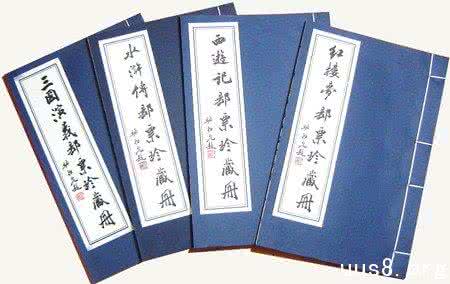 三国演義郵票珍藏册
水滸傳郵票珍藏册
西遊記郵票珍藏册
红楼夢郵票珍藏册
uus8.org